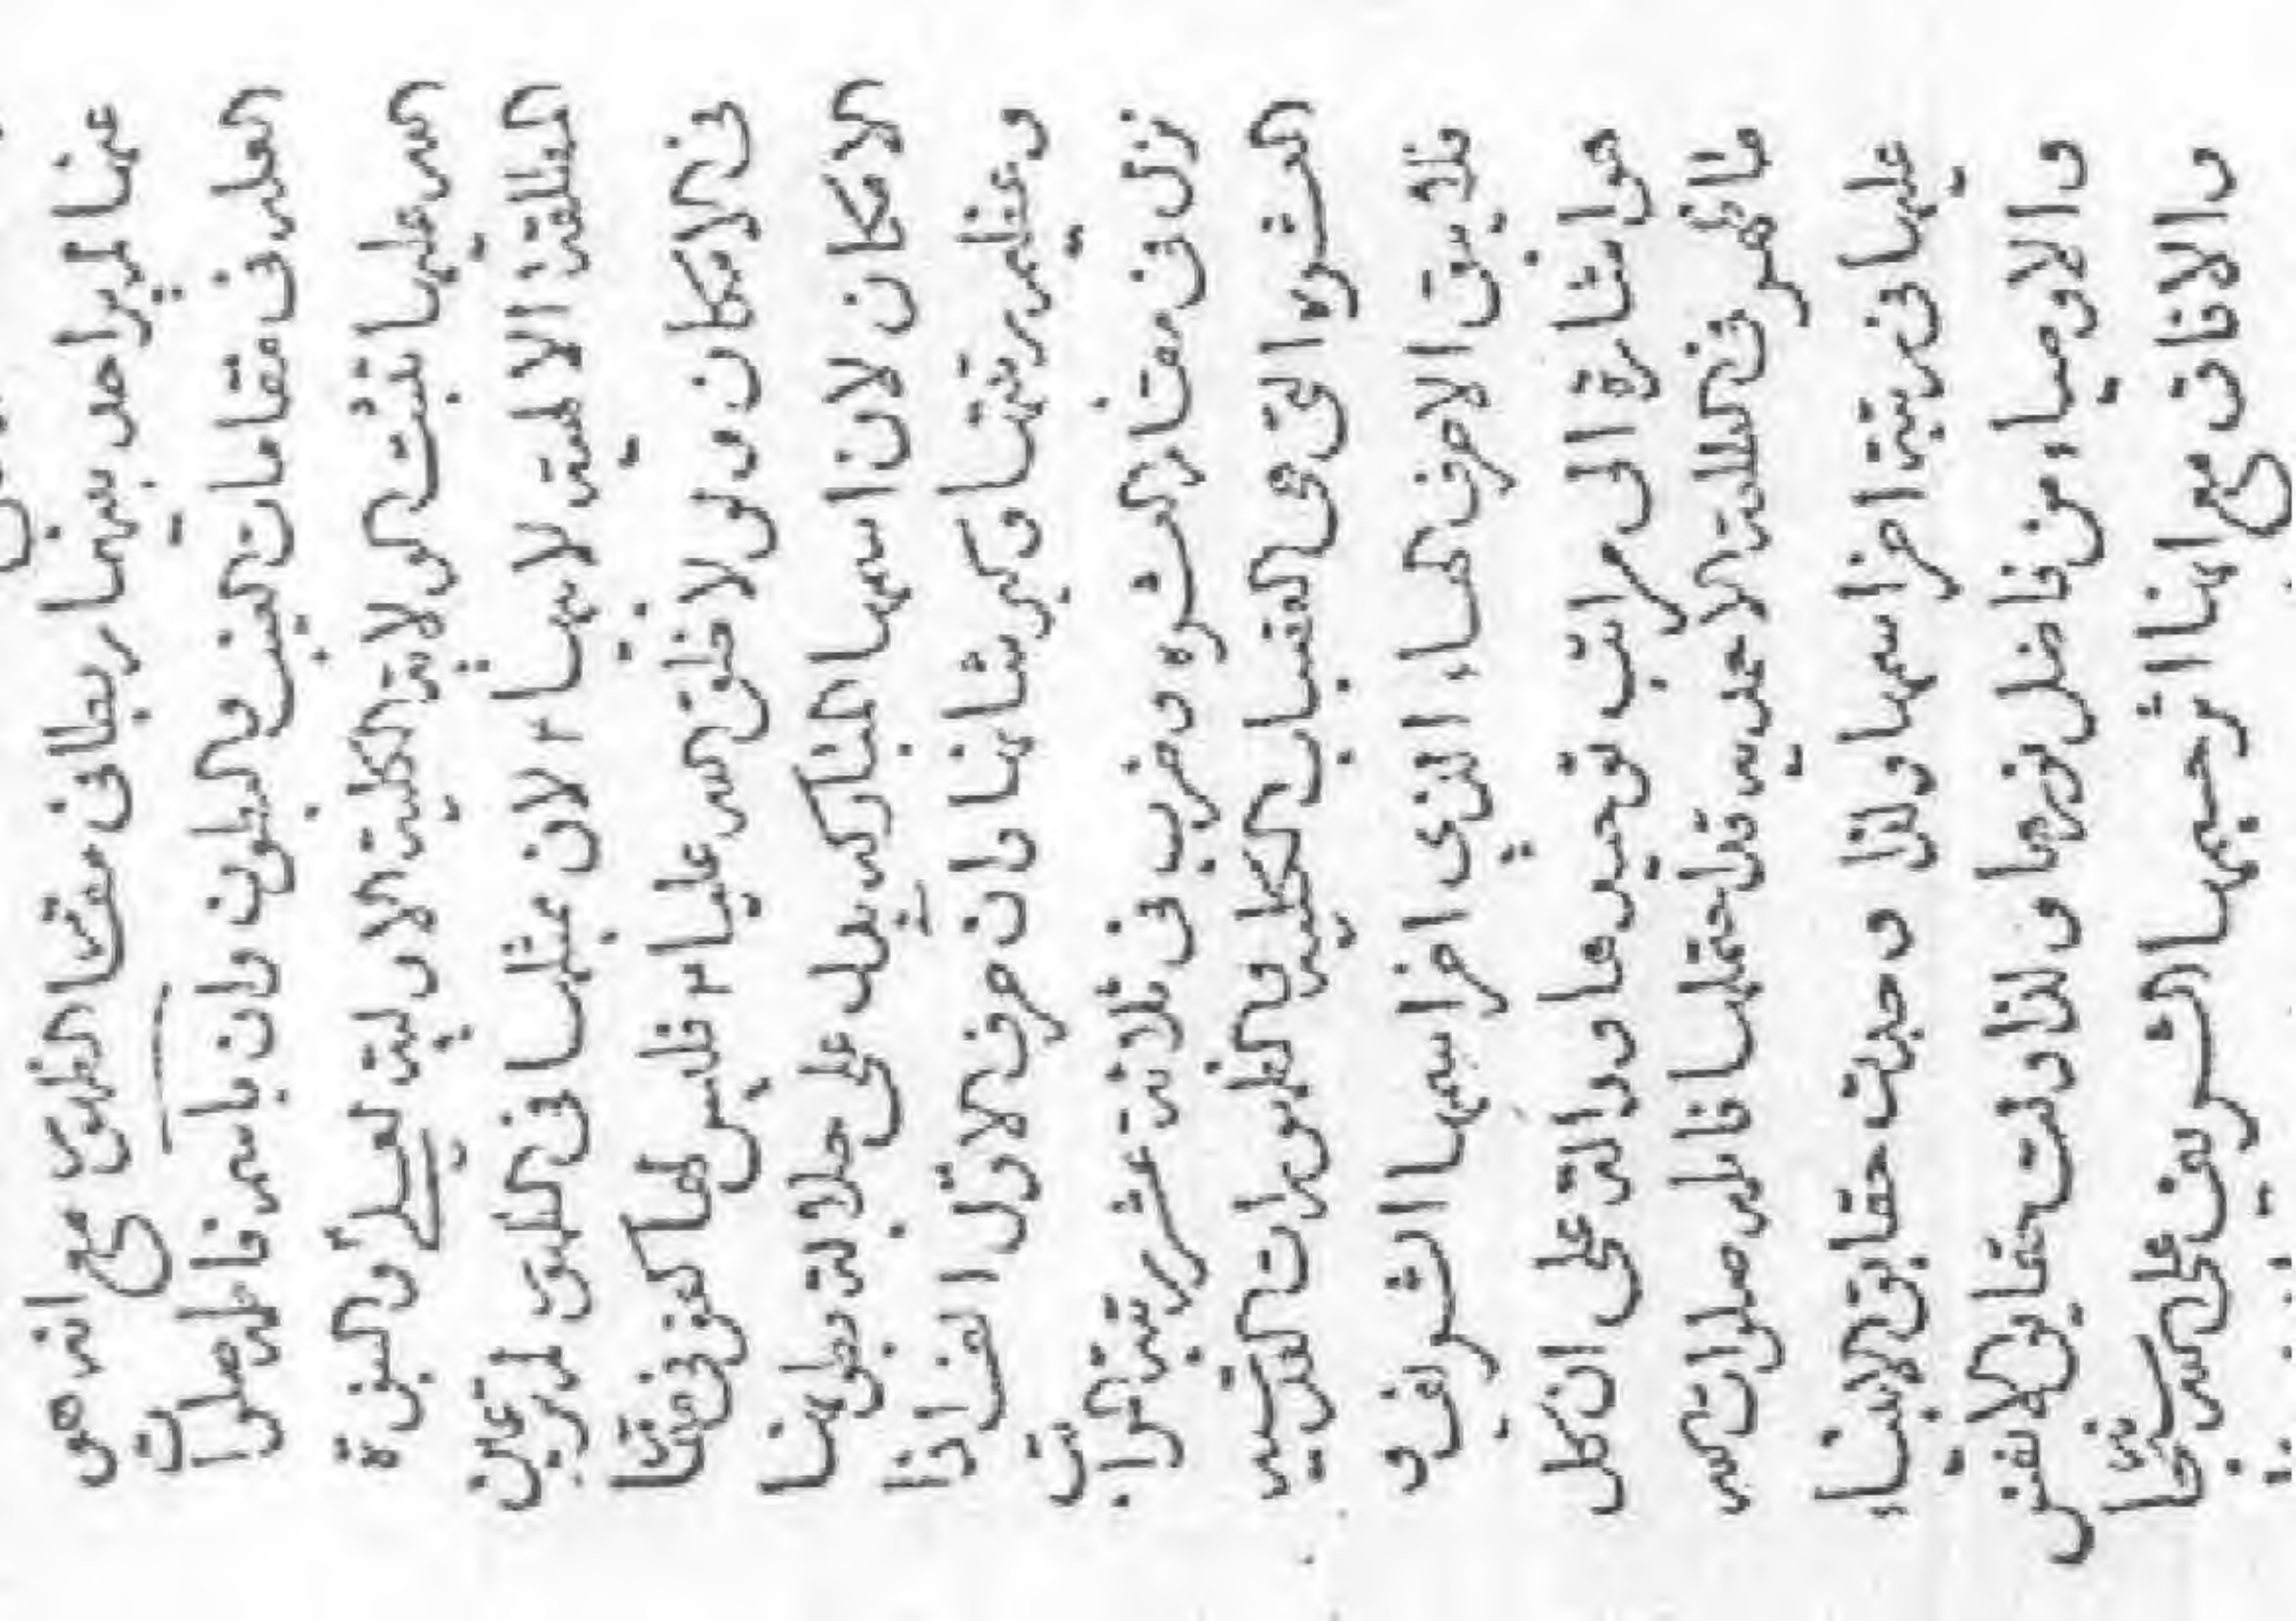 عنها لم يراحد بينهما ربطا فى مقام الظهور مع انه هو
العلى فى مقامات الغيب و البطون وان باسم فاطمة صلوات
الله عليها تثبت الولاية الكلية الاولية لعلي و النبوة
المطلقة الالهية لابيها لان مثلها فى الظهور لم يتعين
فى الامكان ولولا خلق الله عليا فليس لها كفو فى مقام
الامكان لان اسمها المبارك يدل على جلالة بطونها
وعظمة رتبتها وكبر شانها وان حرف الاول الف اذا
نزل فى مقام العشره وضرب فى ثلاثة عشر رتبة مراتب
العشره التى هى القصبات الكلية والظهورات القدسية
فلا يبق الا حرف الهاء الذي اخر اسمها الشريف و
هو اشارة الى مراتب توحيدها ودلالة على ان كل
ما ظهر فى كلمة الاحدية قد احتملها فاطمه صلوات الله
عليها فى رتبة اخر اسمها ولذا وجدت حقايق الانبياء
و الاوصياء من فاضل نورها ولذا دلت حقايق الانفس
والافاق مع انها اثر جسمها الشريف على الله